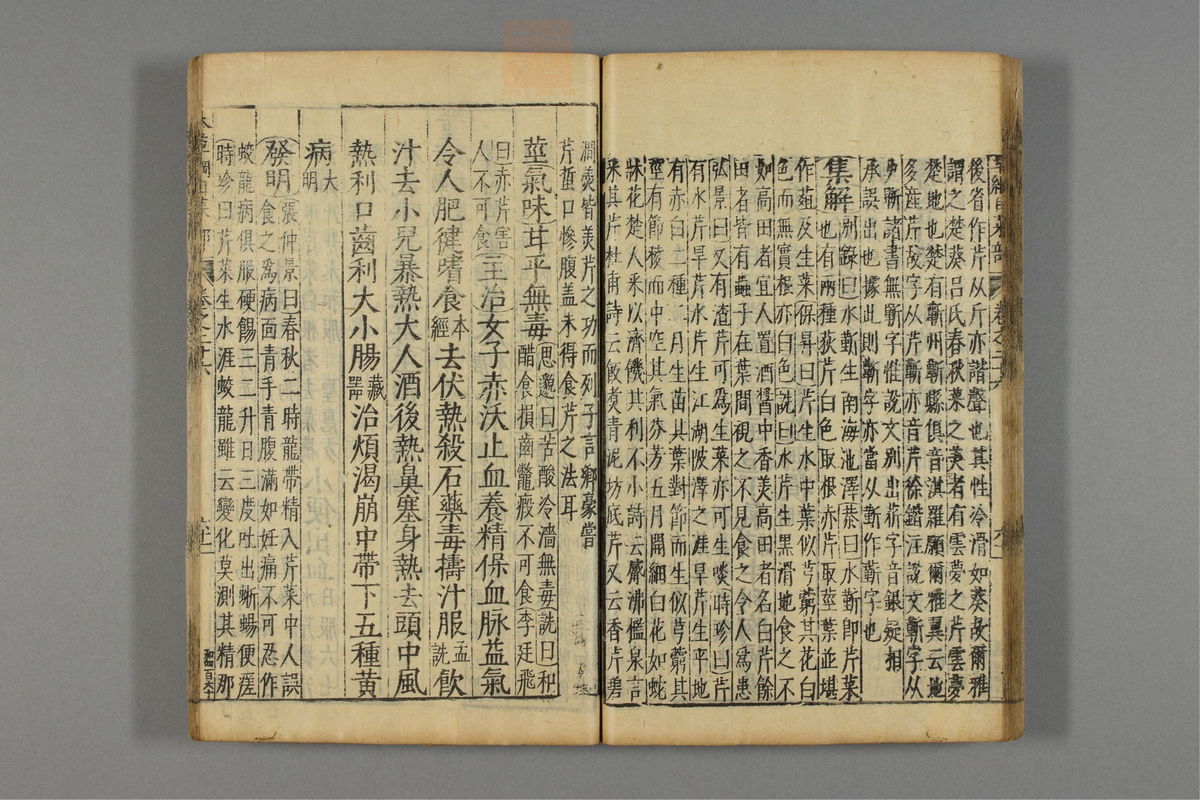 後省作芹从斤亦諧聲也其性冷滑如葵故爾雅
謂之楚葵呂氏春秋菜之美者有雲夢之芹雲夢
楚地也楚有蘄州蘄縣俱音淇羅願爾雅翼云地
多產芹故字从芹蘄亦音芹徐鍇注說文蘄字从
艸蘄諸書無蘄字惟說文別出䔙字音銀疑相
承誤出也據此則蘄字亦當从蘄作蘄字也
集解別錄曰水蘄生南海池澤恭曰水蘄即芹菜
也有兩種荻芹白色取根赤芹取莖葉並堪
作葅及生菜保昇曰芹生水中葉似芎藭其花白
色而無實根亦白色詵曰水芹生黑滑地食之不
如高田者宜人置酒醬中香美高田者名白芹餘
田者皆有蟲子在葉間視之不見食之令人為患
弘景曰又有渣芹可為生菜亦可生啖時珍曰芹
有水芹旱芹水芹生江湖陂澤之涯旱芹生平地
有赤白二種二月生苗其葉對節而生似芎藭其
莖有節稜而中空其氣芬芳五月開細白花如蛇
牀花楚人采以濟饑其利不小詩云觱沸檻泉言
采其芹杜甫詩云飯煑青泥坊底芹又云香芹碧
澗羹皆美芹之功而列子言鄉豪嘗
芹蜇口慘腹蓋未得食芹之法耳
莖氣味甘平無毒思邈曰苦酸冷濇無毒詵曰和
醋食損齒鼈瘕不可食李廷飛
曰赤芹害
人不可食主治女子赤沃止血養精保血脉益氣
令人肥健嗜食本經去伏熱殺石藥毒擣汁服孟詵飲
汁去小兒暴熱大人酒後熱鼻塞身熱去頭中風
熱利口齒利大小腸藏器治煩渴崩中帶下五種黃
病大明
發明張仲景曰春秋二時龍帶精入芹菜中人誤
食之為病面青手青腹滿如妊痛不可忍作
蛟龍病俱服硬餳三二升日三度吐出蜥蜴便瘥
時珍曰芹菜生水涯蛟龍雖云變化莫測其精那